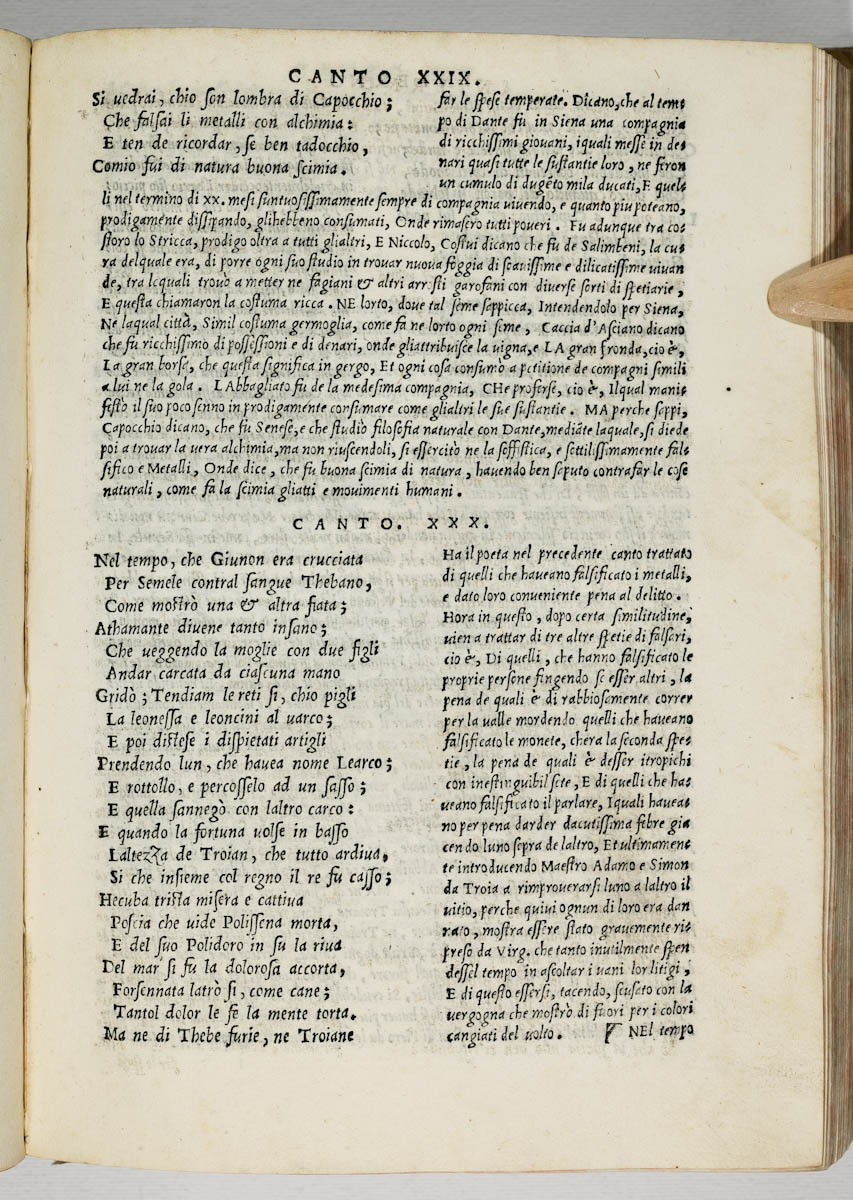 CANTO XXIX.
Si uedrai, chio son lombra di Capocchio;
Che falsai li metalli con alchimia:
E ten de ricordar, se ben tadocchio,
Comio fui di natura buona scimia.
far le spese temperate. Dicano, che al tem⸗
po di Dante fu in Siena una compagnia
di ricchissimi giouani, iquali messe in de⸗
nari quasi tutte le sustantie loro, ne feron
un cumulo di dugẽto mila ducati, E quel⸗
li nel termino di xx. mesi suntuosissimamente sempre di compagnia uiuendo, e quanto piu poteano,
prodigamente dissipando, glihebbeno consumati, Onde rimasero tutti poueri. Fu adunque tra co⸗
storo lo Stricca, prodigo oltra a tutti glialtri, E Niccolo, Costui dicano che fu de Salimbeni, la cu⸗
ra delquale era, di porre ogni suo studio in trouar nuoua foggia di soauissime e dilicatissime uiuan
de, tra lequali trouò a metter ne fagiani & altri arrosti garofani con diuerse sorti di spetiarie,
E questa chiamaron la costuma ricca. NE lorto, doue tal seme sappicca, Intendendolo per Siena,
Ne laqual città, Simil costuma germoglia, come fa ne lorto ogni seme, Caccia d'Asciano dicano
che fu ricchissimo di possessioni e di denari, onde gliattribuisce la uigna, e LA gran fronda, cio è,
La gran borsa, che questa significa in gergo, Et ogni cosa consumò a petitione de compagni simili
a lui ne la gola. LAbbagliato fu de la medesima compagnia, CHe proferse, cio è, Ilqual mani⸗
festò il suo poco senno in prodigamente consumare come glialtri le sue sustantie. MA perche seppi,
Capocchio dicano, che fu Senese, e che studiò filosofia naturale con Dante, mediãte laquale, si diede
poi a trouar la uera alchimia, ma non riuscendoli, si essercitò ne la soffistica, e sottilissimamente fal⸗
sifico e Metalli, Onde dice, che fu buona scimia di natura, hauendo ben saputo contrafar le cose
naturali, come fa la scimia gliatti e mouimenti humani.
CANTO. XXX.
Nel tempo, che Giunon era crucciata
Per Semele contral sangue Thebano,
Come mostrò una & altra fiata;
Athamante diuene tanto insano;
Che ueggendo la moglie con due figli
Andar carcata da ciascuna mano
Gridò; Tendiam le reti si, chio pigli
La leonessa e leoncini al uarco;
E poi distese i dispietati artigli
Prendendo lun, che hauea nome Learco;
E rottollo, e percosselo ad un sasso;
E quella sannegò con laltro carco:
E quando la fortuna uolse in basso
Laltezza de Troian, che tutto ardiua,
Si che insieme col regno il re fu casso;
Hecuba trista misera e cattiua
Poscia che uide Polissena morta,
E del suo Polidoro in su la riua
Del mar si fu la dolorosa accorta,
Forsennata latrò si, come cane;
Tantol dolor le fe la mente torta.
Ma ne di Thebe furie, ne Troiane
Ha il poeta nel precedente canto trattato
di quelli che haueano falsificato i metalli,
e dato loro conueniente pena al delitto.
Hora in questo, dopo certa similitudine,
uien a trattar di tre altre spetie di falsari,
cio è, Di quelli, che hanno falsificato le
proprie persone fingendo se esser altri, la
pena de quali è di rabbiosamente correr
per la ualle mordendo quelli che haueano
falsificato le monete, chera la seconda spe⸗
tie, la pena de quali è desser itropichi
con inestinguibil sete, E di quelli che ha⸗
ueano falsificato il parlare, Iquali hauea⸗
no per pena darder dacutissima febre gia
cendo luno sopra de laltro, Et ultimamen⸗
te introducendo Maestro Adamo e Simon
da Troia a rimprouerarsi luno a laltro il
uitio, perche quiui ognun di loro era dan
nato, mostra essere stato grauemente ri⸗
preso da Virg. che tanto inutilmente spen
dessel tempo in ascoltar i uani lor litigi,
E di questo essersi, tacendo, scusato con la
uergogna che mostrò di fuori per i colori
cangiati del uolto. NEl tempo